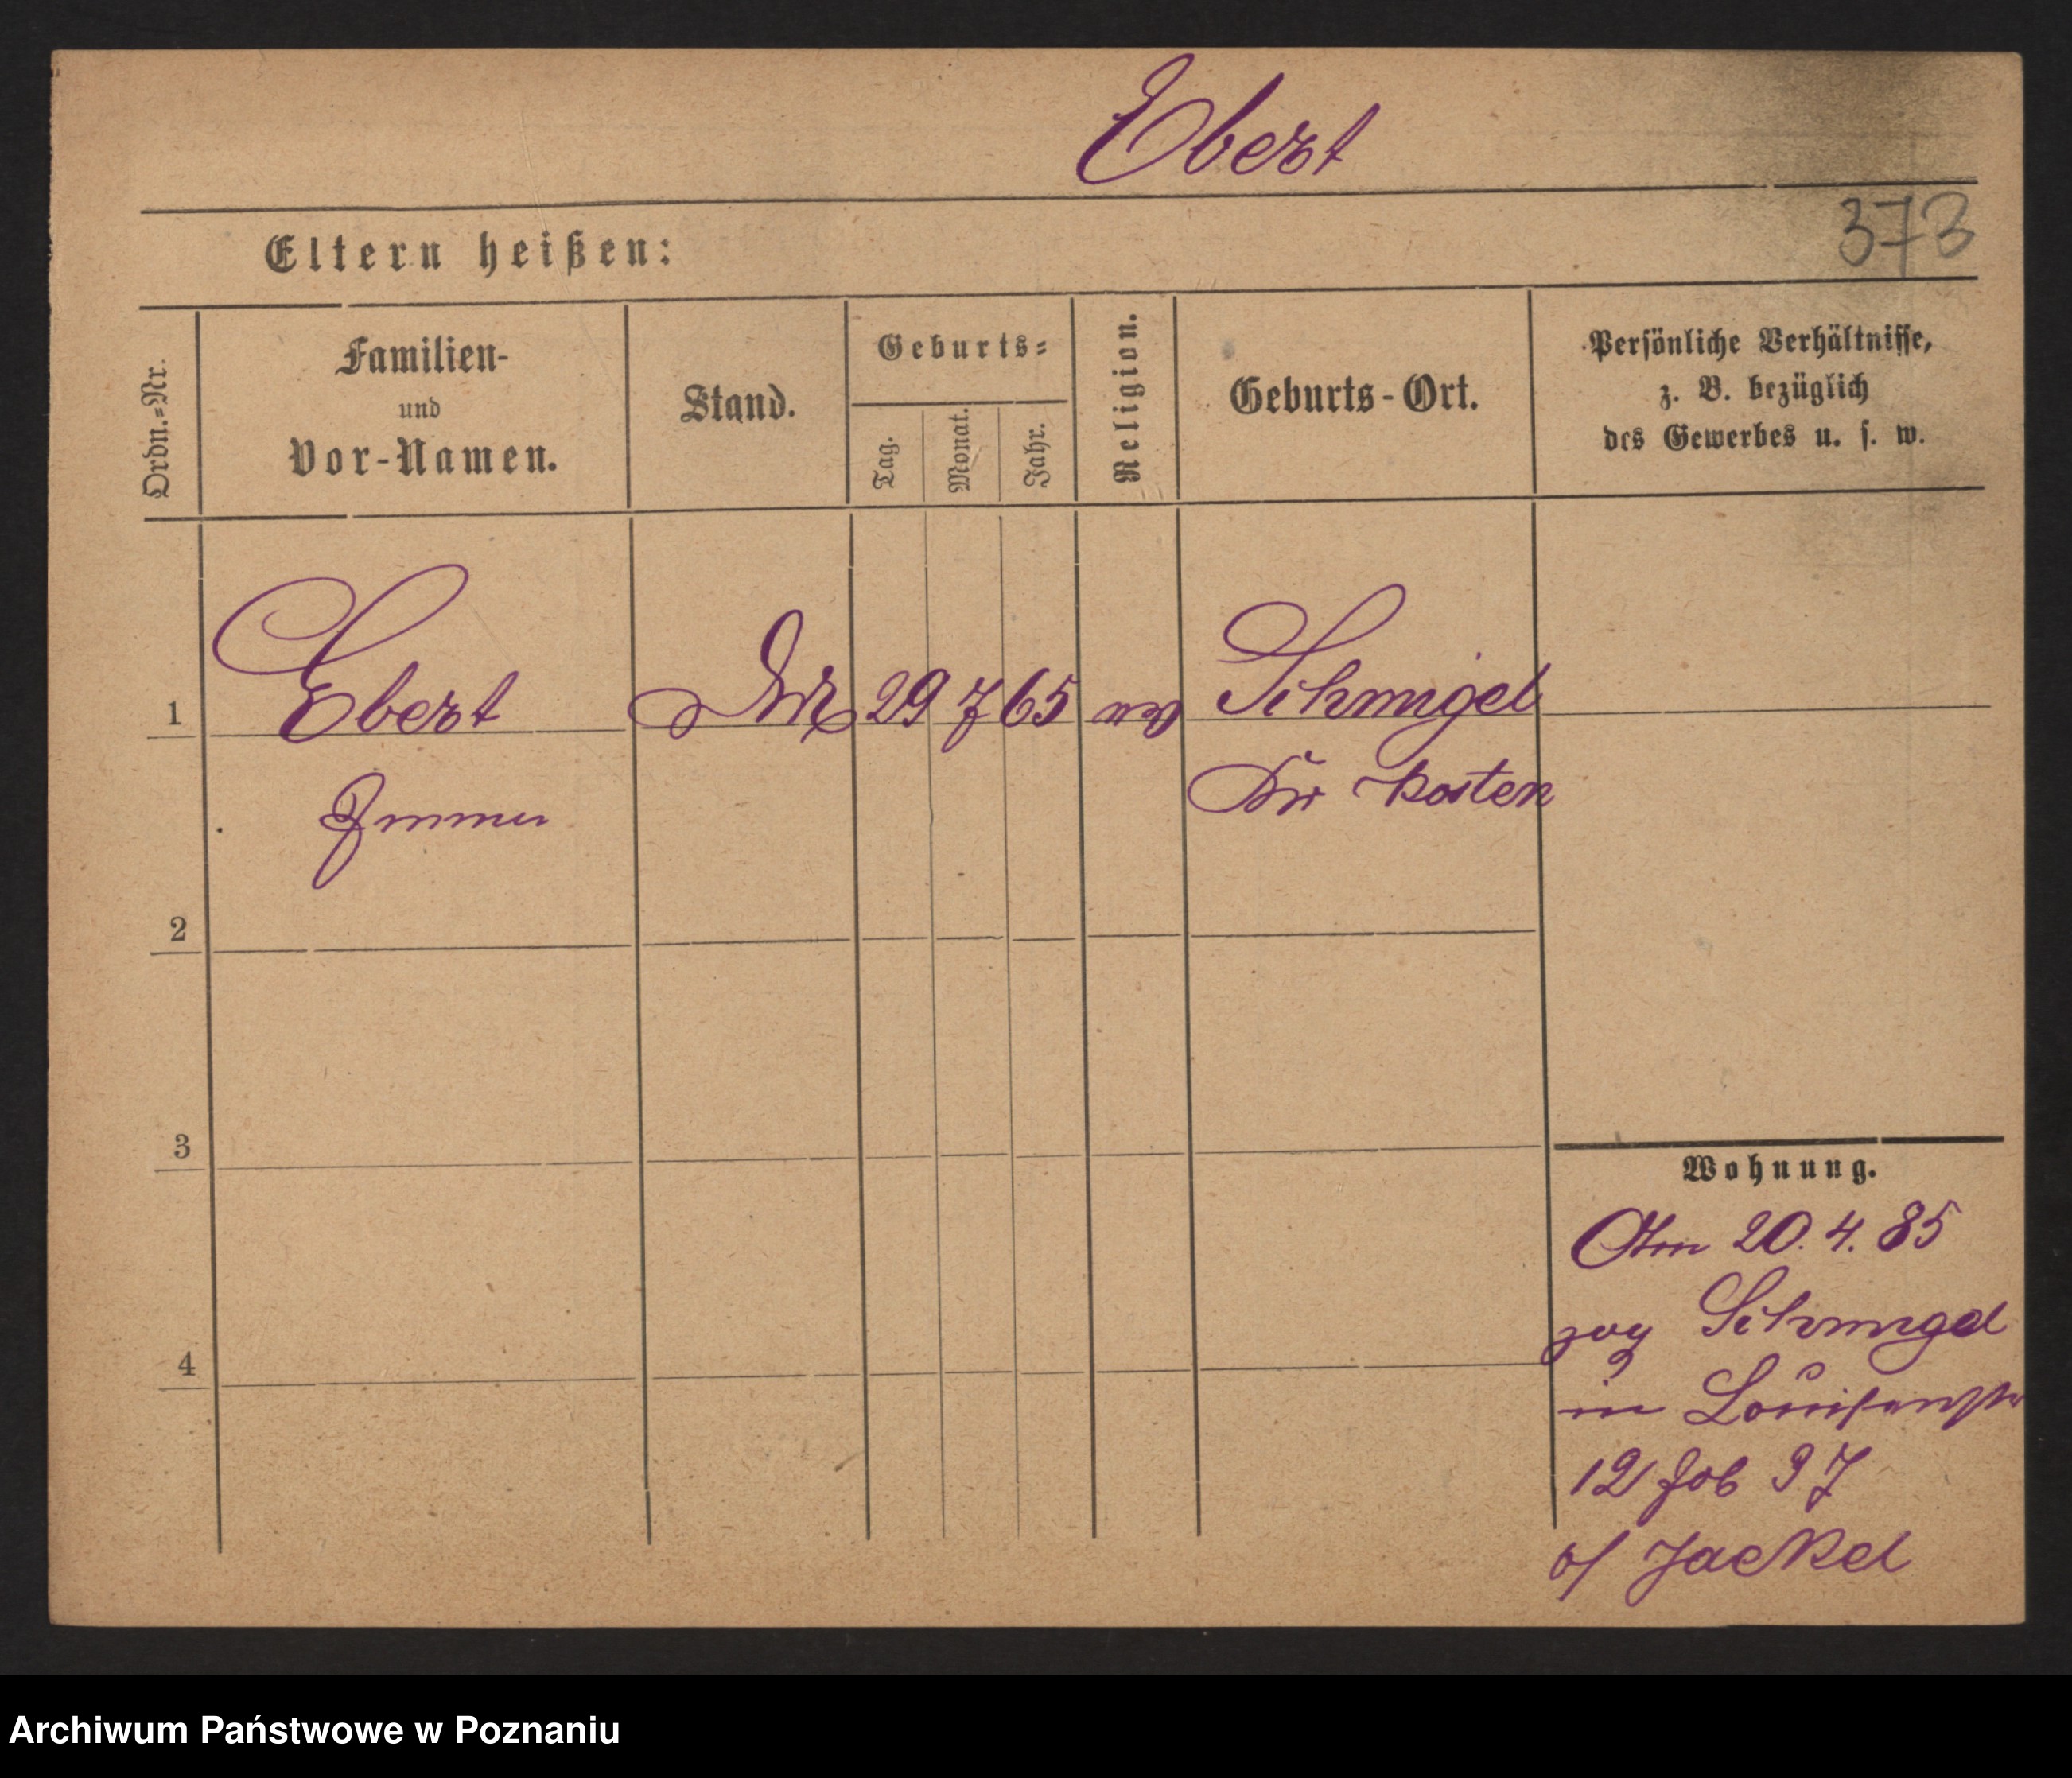 Ebert
373
Eltern heißen:
Ordn.=Nr.
Familien-
und
Vor-Namen.
Stand.
Geburts=
Tag.
Monat.
Jahr.
Religion.
Geburts-Ort.
Persönliche Verhältnisse,
z. B. bezüglich
des Gewerbes u. s. w.
1
Ebert 29 7 65 Schmigel
Emma Kr Kosten
2
3
4
Wohnung.
Am 20. 4. 85
zog Schmigel
in Louisenstr
12
Jaekel
Archiwum Państwowe w Poznaniu